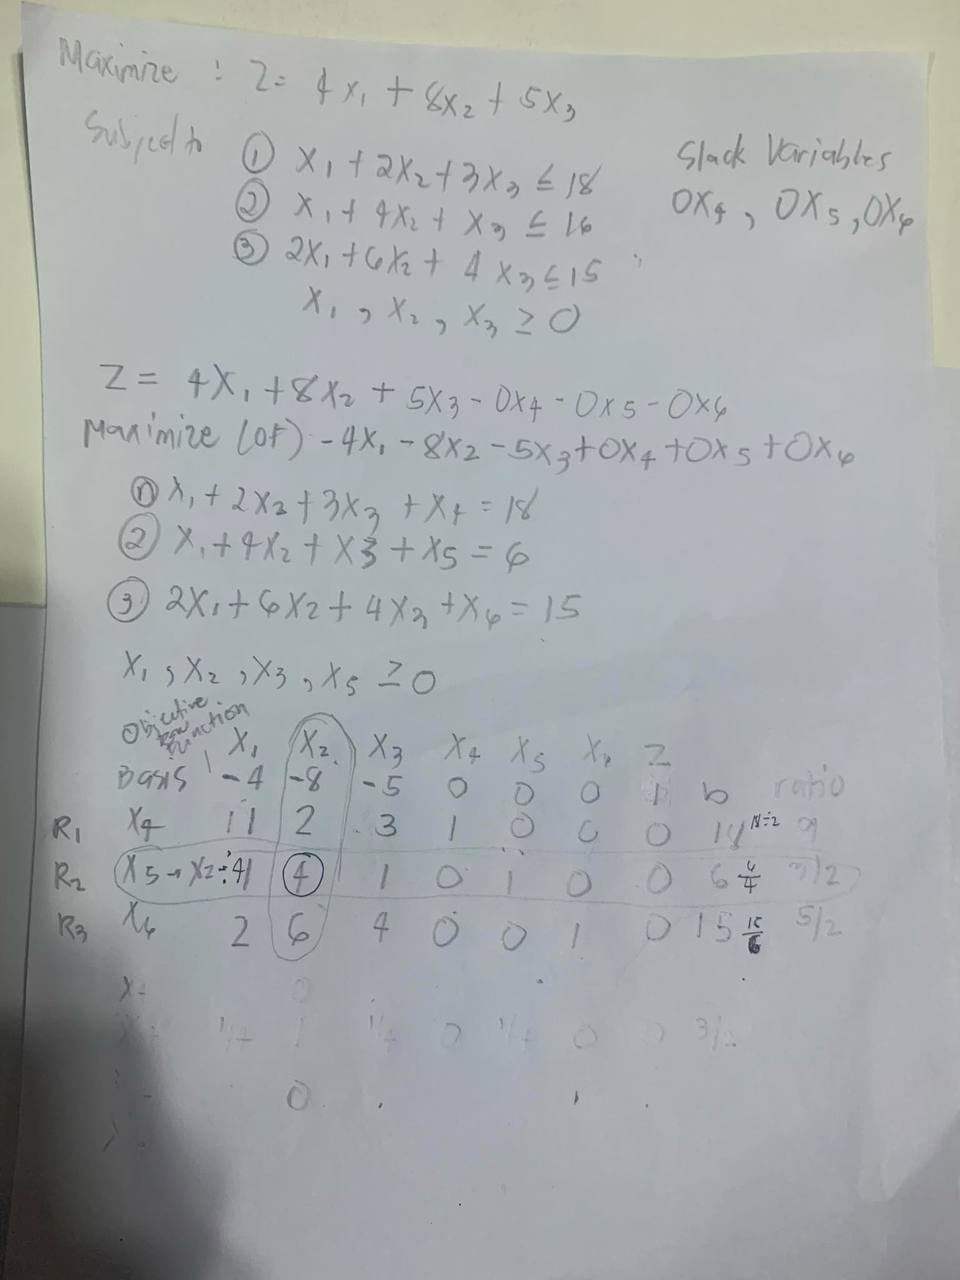 Maximize : Z = 4x₁ + 8x₂ + 5x₃
Subject to
① x₁ + 2x₂ + 3x₃ ≤ 18
② x₁ + 4x₂ + x₃ ≤ 16
③ 2x₁ + 6x₂ + 4x₃ ≤ 15
x₁, x₂, x₃ ≥ 0
Slack Variables
0x₄, 0x₅, 0x₆
Z = 4x₁ + 8x₂ + 5x₃ - 0x₄ - 0x₅ - 0x₆
Maximize (OF) -4x₁ - 8x₂ - 5x₃ + 0x₄ + 0x₅ + 0x₆
① x₁ + 2x₂ + 3x₃ + x₄ = 18
② x₁ + 4x₂ + x3 + x5 = 6
③ 2x₁ + 6x2 + 4x₃ + x₆ = 15
x₁, x₂, x₃, x₅ ≥ 0
Objective
Row
Function
x₁ x₂ x₃ x₄ x₅ Z
Basis -4 -8 -5 0 0 0 1 b ratio
R₁ x₄ 1 2 3 1 0 0 0 9
R₂ x5 → x₂ ÷ 4 1 4 1 0 1 0 0 6 6/4 3/2
R₃ x₆ 2 6 4 0 0 1 0 15 15/6 5/2
0
1/4 1 1/4 0 1/4 0 0 3/2
0